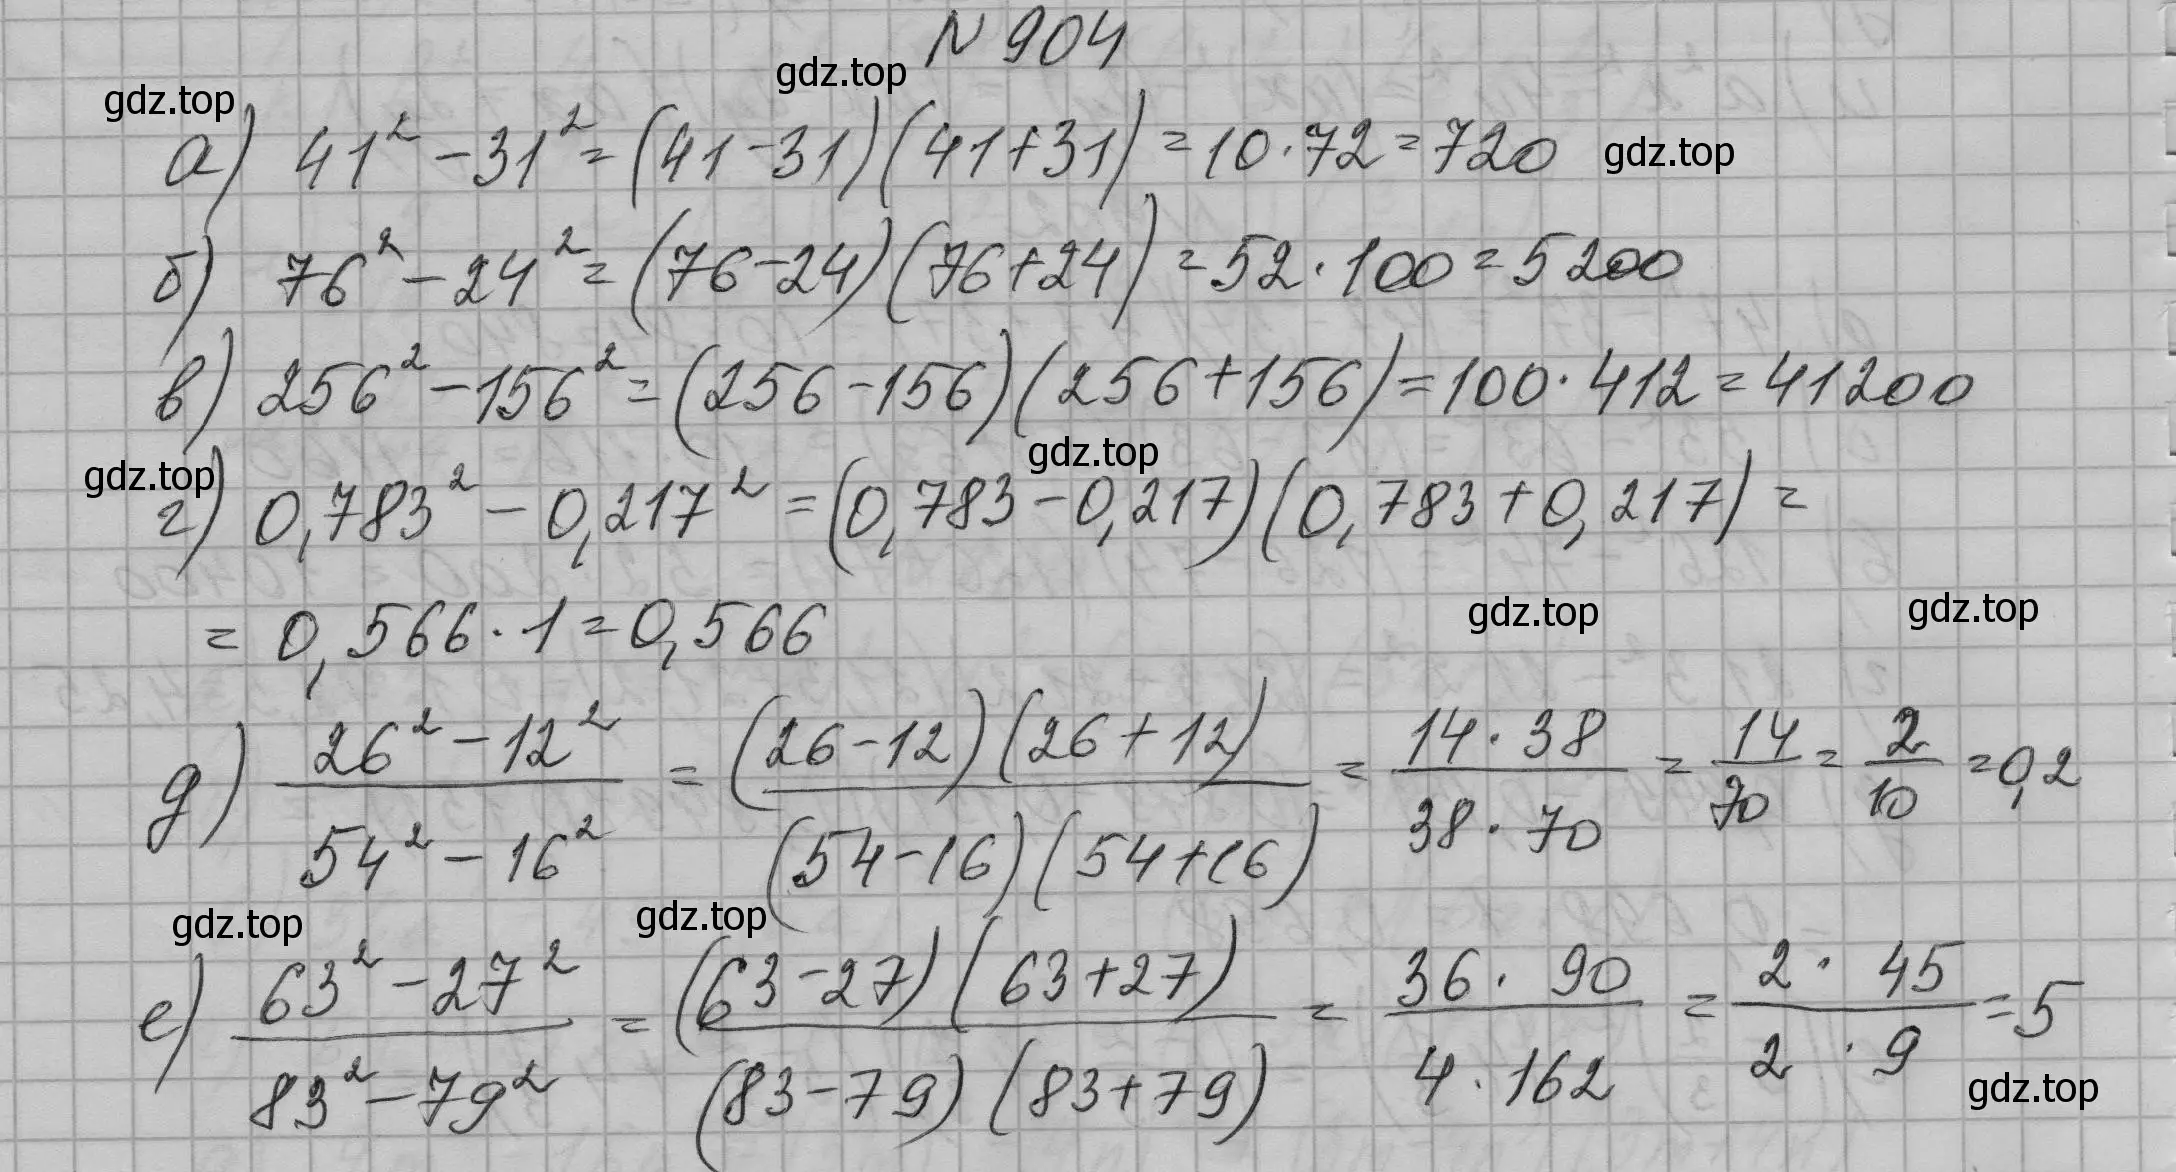 N 904
gdz.top
gdz.top
а) 41² - 31² = (41-31)(41+31) = 10·72 = 720
gdz.top
б) 76² - 24² = (76-24)(76+24) = 52·100 = 5200
в) 256² - 156² = (256-156)(256+156) = 100·412 = 41200
gdz.top
gdz.top
г) 0,783² - 0,217² = (0,783-0,217)(0,783+0,217) =
= 0,566·1 = 0,566
gdz.top
gdz.top
д) (26² - 12²)/(54² - 16²) = ((26-12)(26+12))/((54-16)(54+16)) = (14·38)/(38·70) = 14/70 = 2/10 = 0,2
gdz.top
gdz.top
е) (63² - 27²)/(83² - 79²) = ((63-27)(63+27))/((83-79)(83+79)) = (36·90)/(4·162) = (2·45)/(2·9) = 5
gdz.top